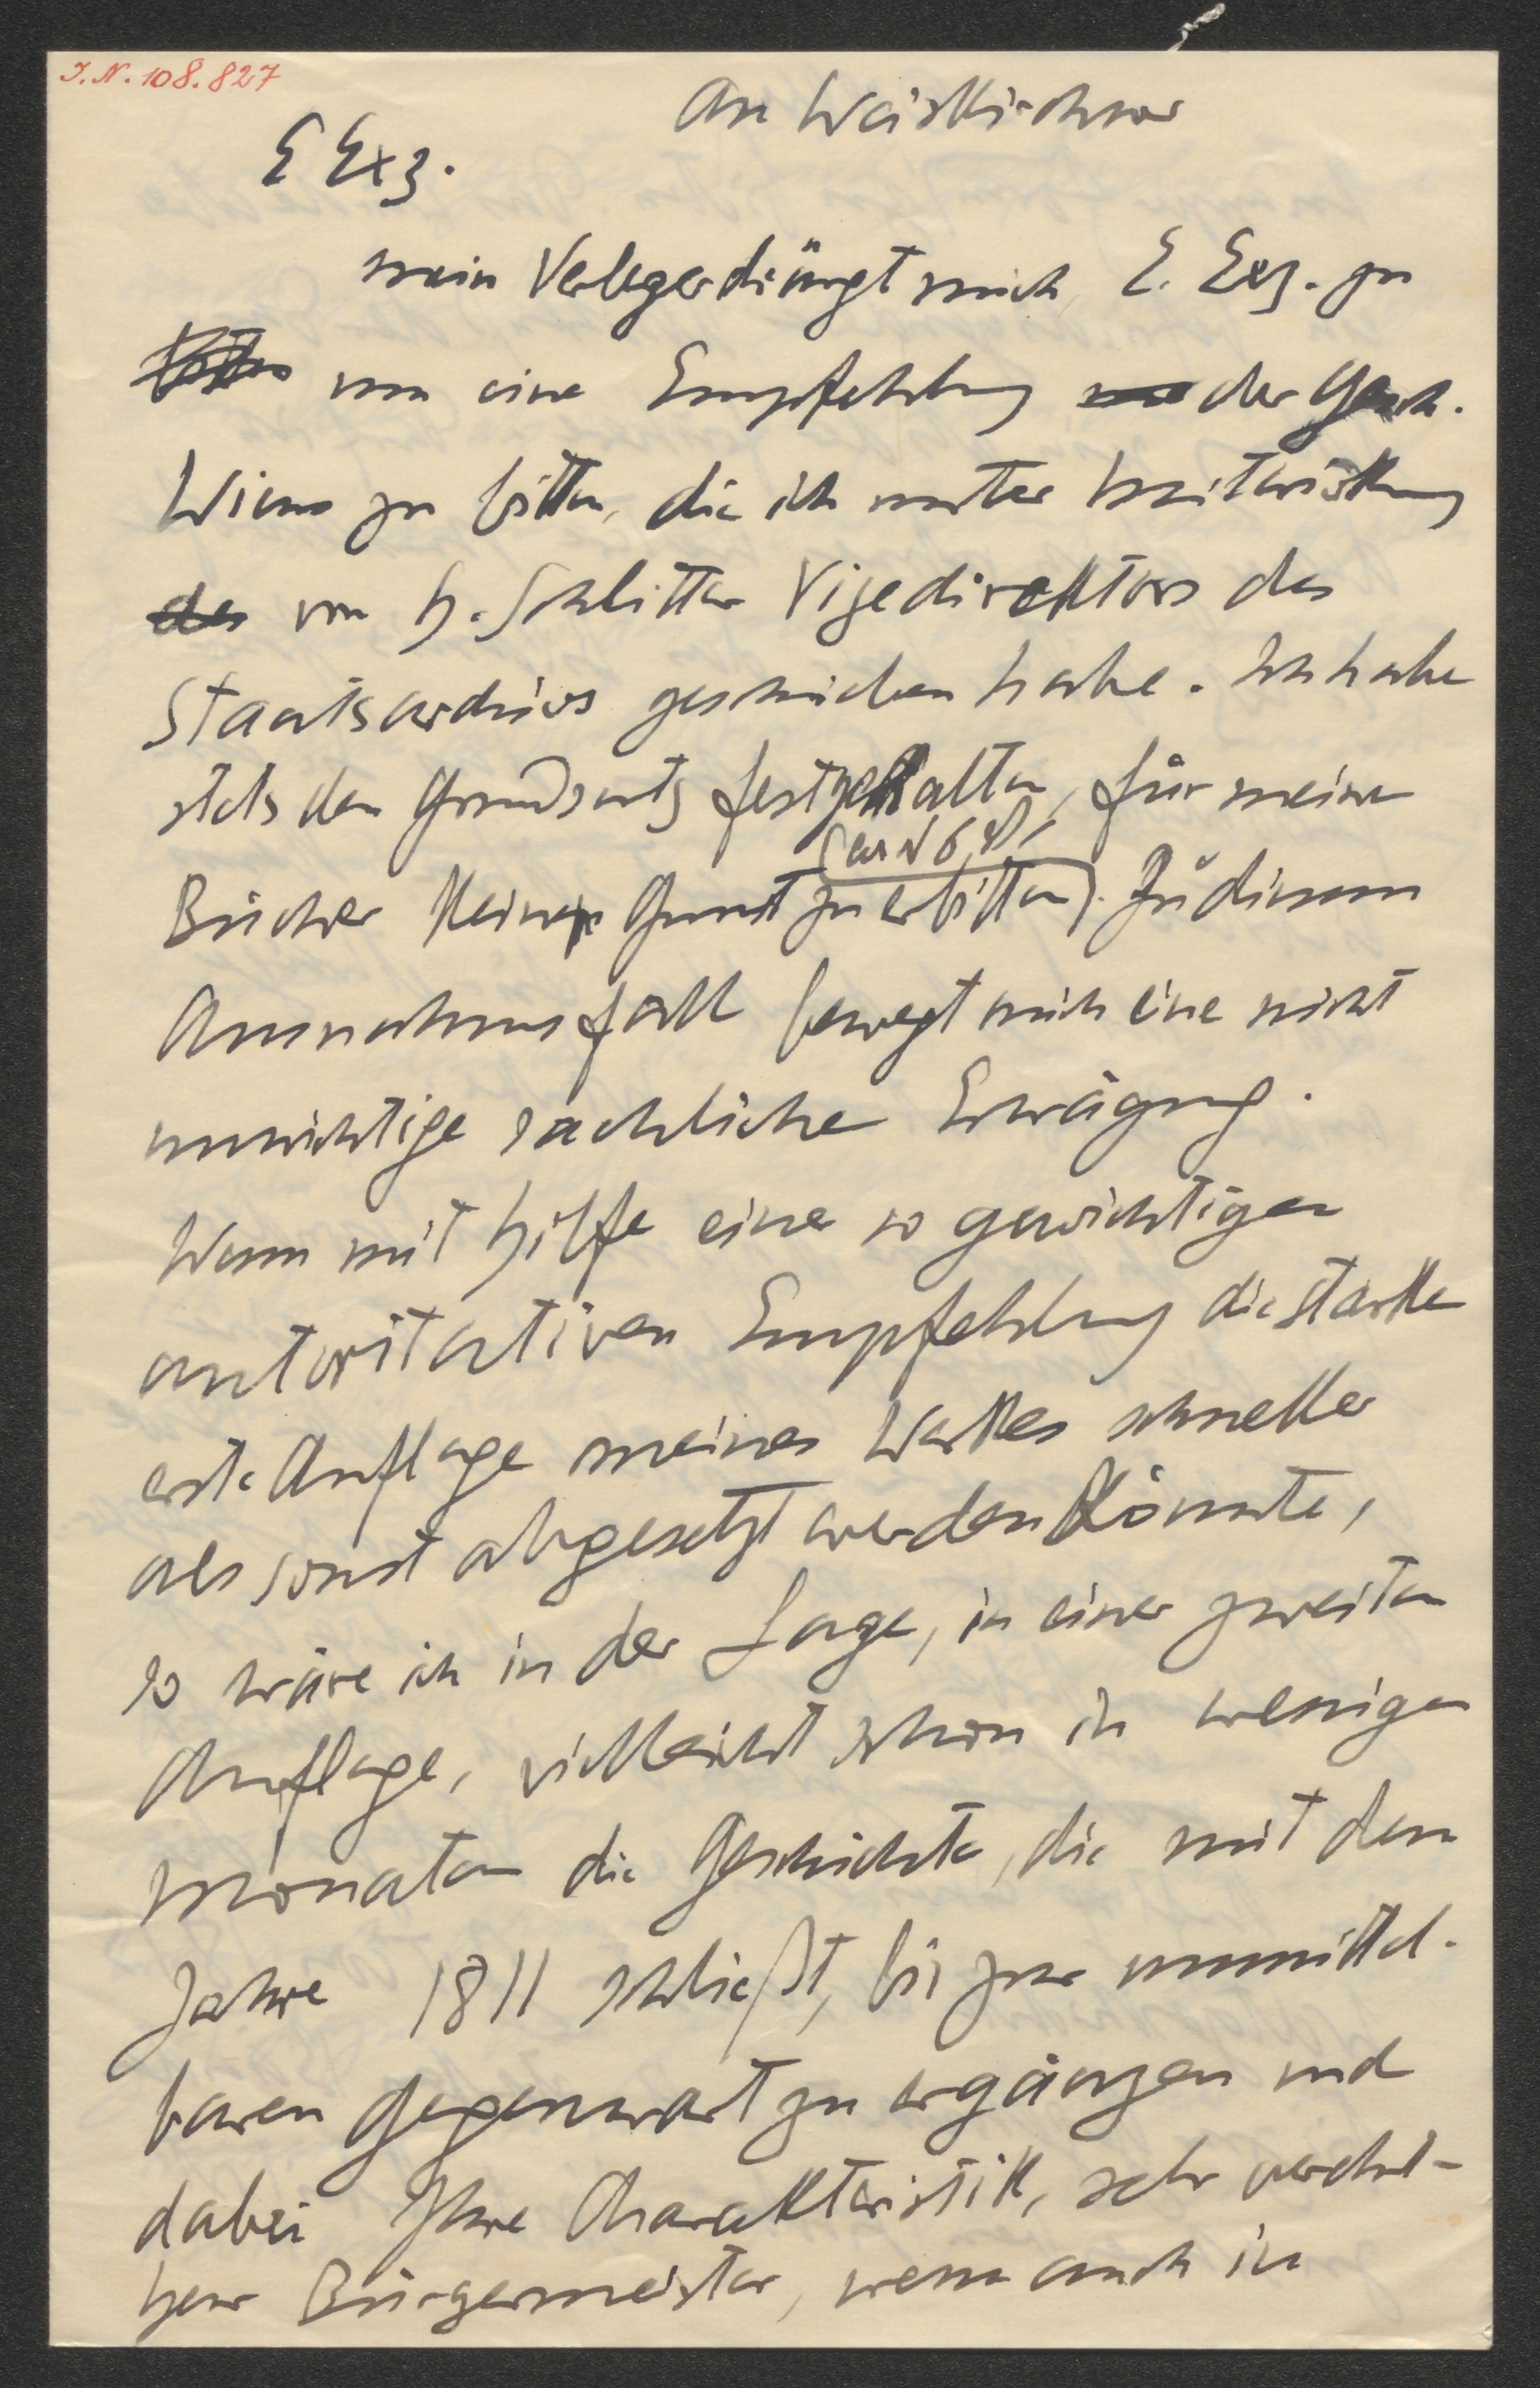 I.N. 108.827
An Weiskirchner
E Exz.
mein Verleger drängt mich, E. Exz. zu
um eine Empfehlung der Gesch.
Wiens zu bitten, die ich unter Mitwirkung
des von H. Schlitter Vizedirektors des
Staatsarchivs geschrieben habe. Ich habe
stets den Grundsatz festgehalten, für meine
Bücher keine Gunst zu erbitten). Zu diesem
Ausnahmsfall bewegt mich eine nicht
unwichtige sachliche Erwägung.
Wenn mit Hilfe einer so gewichtigen
autoritativen Empfehlung die starke
erste Auflage meines Werkes schneller
als sonst abgesetzt werden könnte,
so wäre ich in der Lage, in einer zweiten
Auflage, vielleicht schon in wenigen
Monaten die Geschichte, die mit dem
Jahre 1811 schließt, bis zur unmittel-
baren Gegenwart zu ergänzen und
dabei Ihre Charakteristik, sehr verehr-
Herr Bürgermeister, wenn auch in